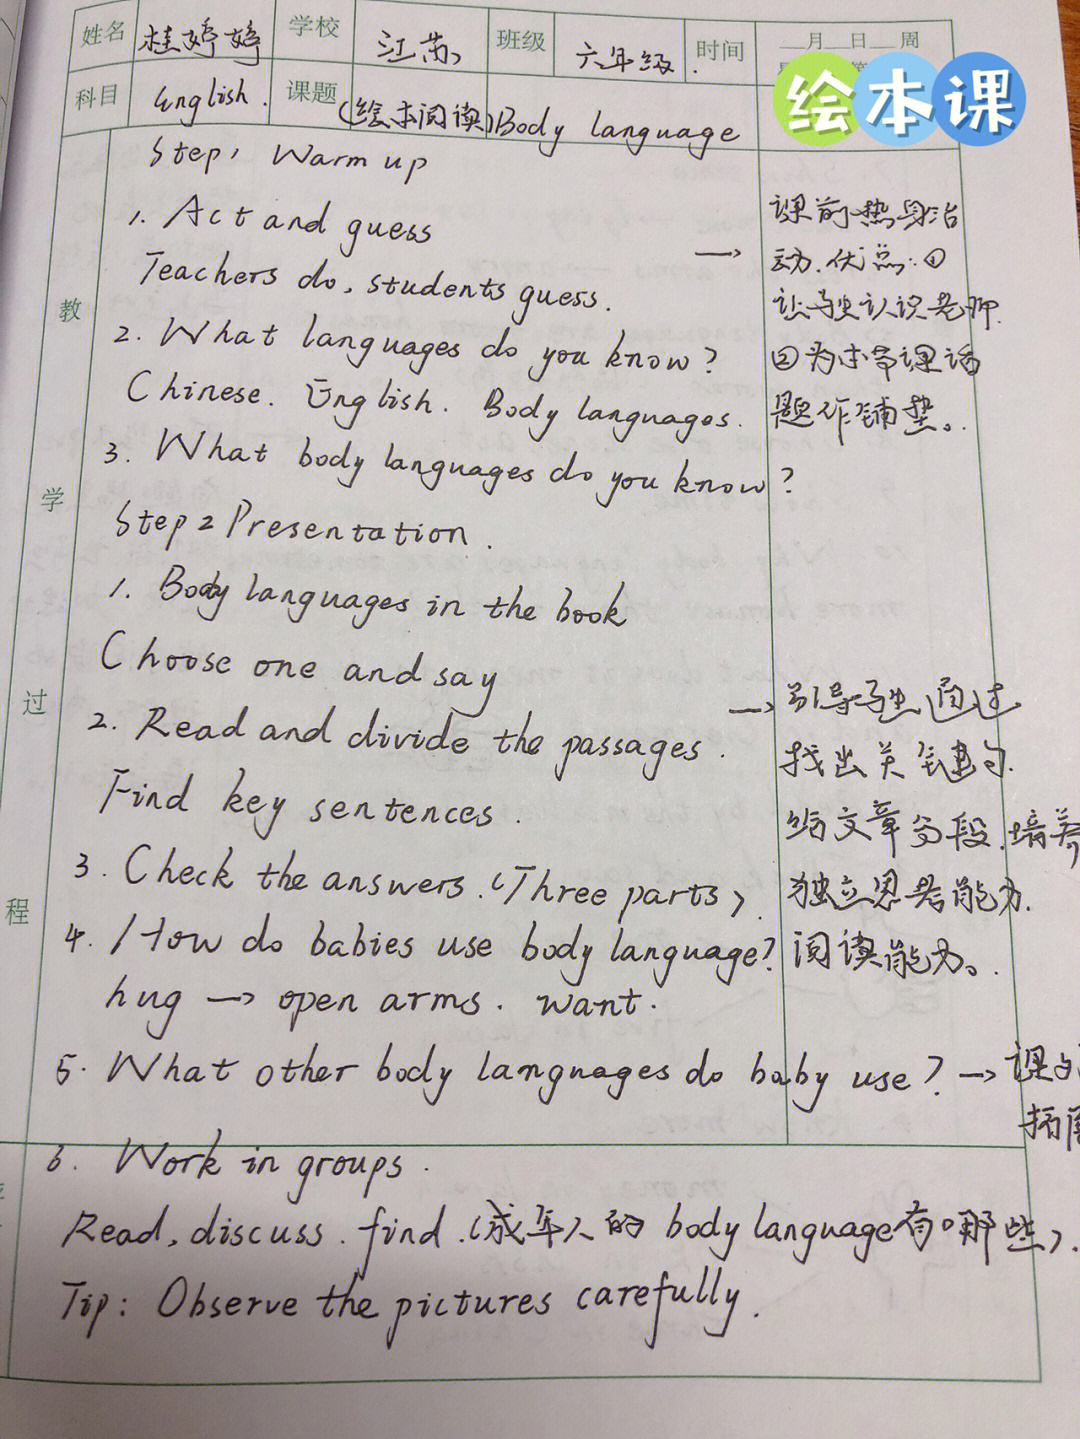 姓名 桂婷婷 学校 江苏 班级 六年级 时间 __月__日__周
绘本课
科目 English. 课题 (绘本阅读)Body language
教学过程
Step1 Warm up
1. Act and guess
Teachers do, students guess.
2. What languages do you know?
Chinese. English. Body languages.
3. What body languages do you know?
→ 课前热身活
动.优点:①
让学生认识老师.
②为本节课话
题作铺垫。
Step 2 Presentation.
1. Body languages in the book
Choose one and say
2. Read and divide the passages.
Find key sentences.
3. Check the answers.(Three parts).
→ 引导学生通过
找出关键句.
给文章分段.培养
独立思考能力.
阅读能力。
4. How do babies use body language?
hug → open arms. want.
5. What other body languages do baby use? → 课
拓
6. Work in groups.
Read, discuss. find.(成年人的 body language有哪些).
Tip: Observe the pictures carefully.